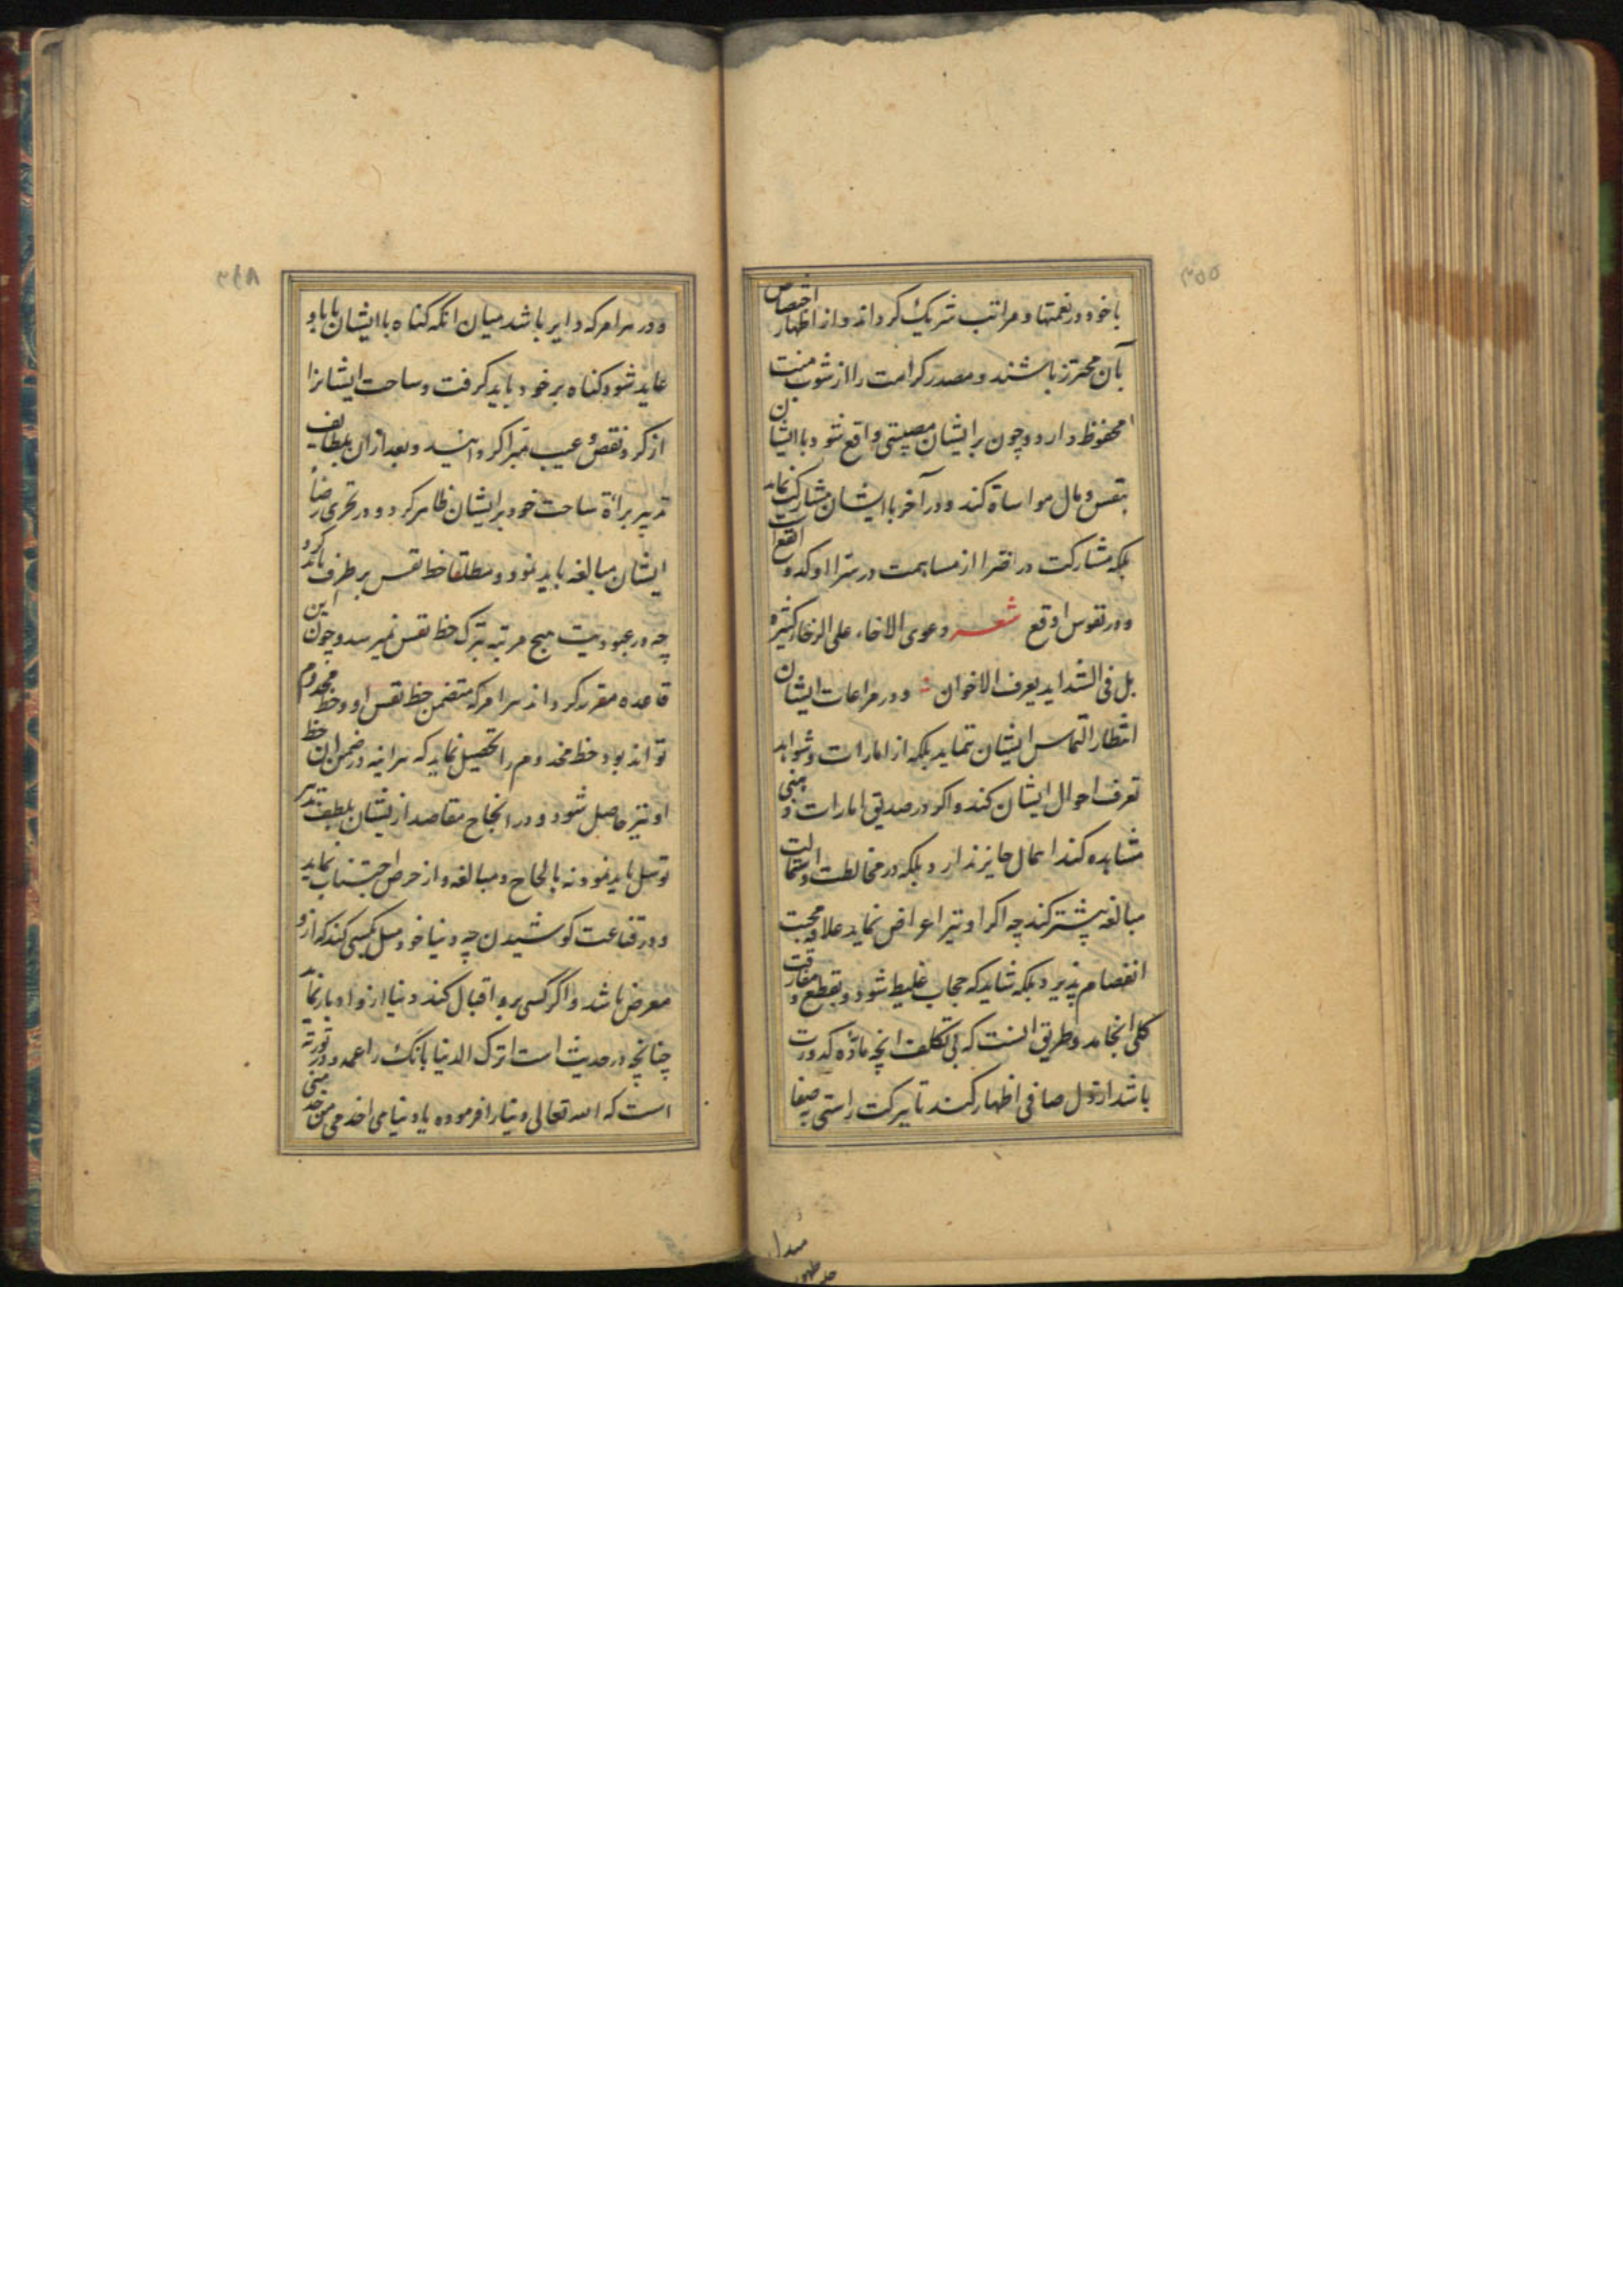 ۳۵۵
با خود در نعمتها و مراتب شریک کرداند و از اظهار اختصاص
بآن محترز باشند و مصدر کرامت را از شوب منت
محفوظ دارد و چون بر ایشان مصیبتی واقع شود با ایشان
بنفس و مال مواساة کند و در آخر با ایشان مشارکت نماید
بلکه مشارکت در ضرا از مساهمت در سرا اوکد و انفع است
و در نفوس اوقع شعر دعوی الاخاء علی الرخاء کثیره
بل فی الشداید یعرف الاخوان و در مراعات ایشان
انتظار التماس ایشان ننماید بلکه از امارات و شواهد
تعرف احوال ایشان کند و اکر در صدیق امارات
مشاهده کند اهمال جایز ندارد بلکه در مخالطت و استمالت
مبالغه بیشتر کند چه اکر او نیز اعراض نماید علاقه محبت
انفصام پذیرد بلکه شاید که حجاب غلیظ شود و بقطع و مفارقت
کلی انجامد و طریق انست که بی تکلف انچه ماده کدورت
باشد از دل صافی اظهار کند تا ببرکت راستی بصفا
۳۶۸
و در هر امر که دایر باشد میان انکه کناه با ایشان یا باو
عاید شود کناه بر خود باید کرفت و ساحت ایشانرا
از کرد نقص و عیب مبرا کردانید و بعد از ان بلطایف
تدبیر براءة ساحت خود بر ایشان ظاهر کرد و در تحری رضاء
ایشان مبالغه باید نمود و مطلقا حظ نفس بر طرف باید کرد
چه در عبودیت هیچ مرتبه بترک حظ نفس نمیرسد و چون این
قاعده مقرر کرداند هر امر که متضمن حظ نفس او و حظ مخدوم
تواند بود حظ مخدوم را تحصیل نماید که هر اینه در ضمن ان حظ
او نیز حاصل شود و در انجاح مقاصد از یشان بلطف تدبیر
توسل باید نمود نه بالحاح و مبالغه و از حرص اجتناب نماید
و در قناعت کوشیدن چه دنیا خود میل بکسی کند که ازو
معرض باشد و اکر کسی برو اقبال کند دنیا ازو اه باز نماید
چنانچه در حدیث است اترک الدنیا تاتک راغمه و در توریة
است که الله تعالی دنیا را فرموده یا دنیا می اخدمی من خدمنی